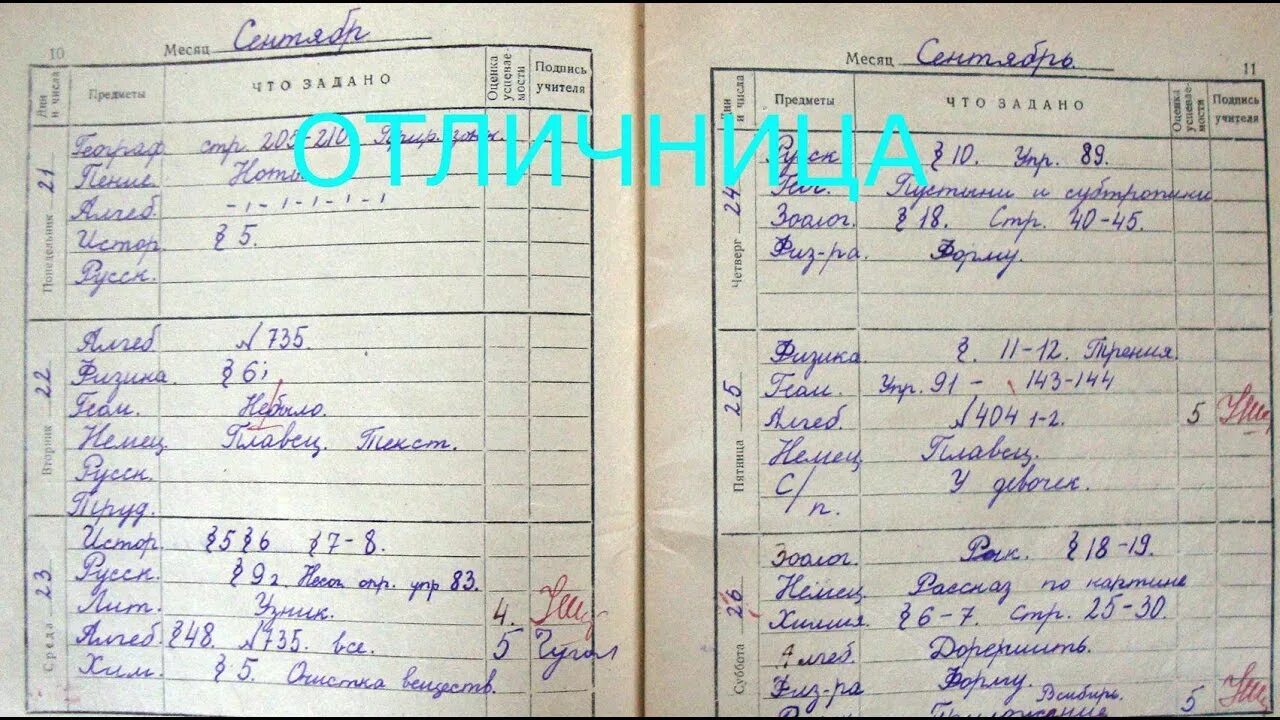 10 Месяц Сентябр
Дни и числа Предметы ЧТО ЗАДАНО Оценка успеваемости Подпись учителя
ОТЛИЧНИЦА
Понедельник 21
Географ. стр. 205-210
Пение. Ноты
Алгеб. -1-1-1-1-1
Истор. § 5.
Русск.
Вторник 22
Алгеб №735.
Физика. § 6;
Геом. Небыло.
Немец. Плавец. Текст.
Русск.
Труд.
Среда 23
Истор. § 5 § 6 § 7-8.
Русск. § 9 г. упр 83.
Лит. Узник. 4.
Алгеб. §48. №735. все. 5
Хим. § 5. Очистка веществ.
Месяц Сентябрь. 11
Дни и числа Предметы ЧТО ЗАДАНО Оценка успеваемости Подпись учителя
Четверг 24
Русск § 10. Упр. 89.
Пустыни и субтропики
Зоолог. § 18. Стр. 40-45.
Физ-ра. Форму.
Пятница 25
Физика §. 11-12. Трения.
Геом. Упр. 91 - 143-144
Алгеб. №404 1-2. 5
Немец Плавец.
С/п. У девочек.
Суббота 26
Зоолог. Рак. § 18-19.
Немец. Рассказ по картине
Химия. § 6-7. Стр. 25-30.
Алгеб. Дорешить.
Физ-ра Форму. 5